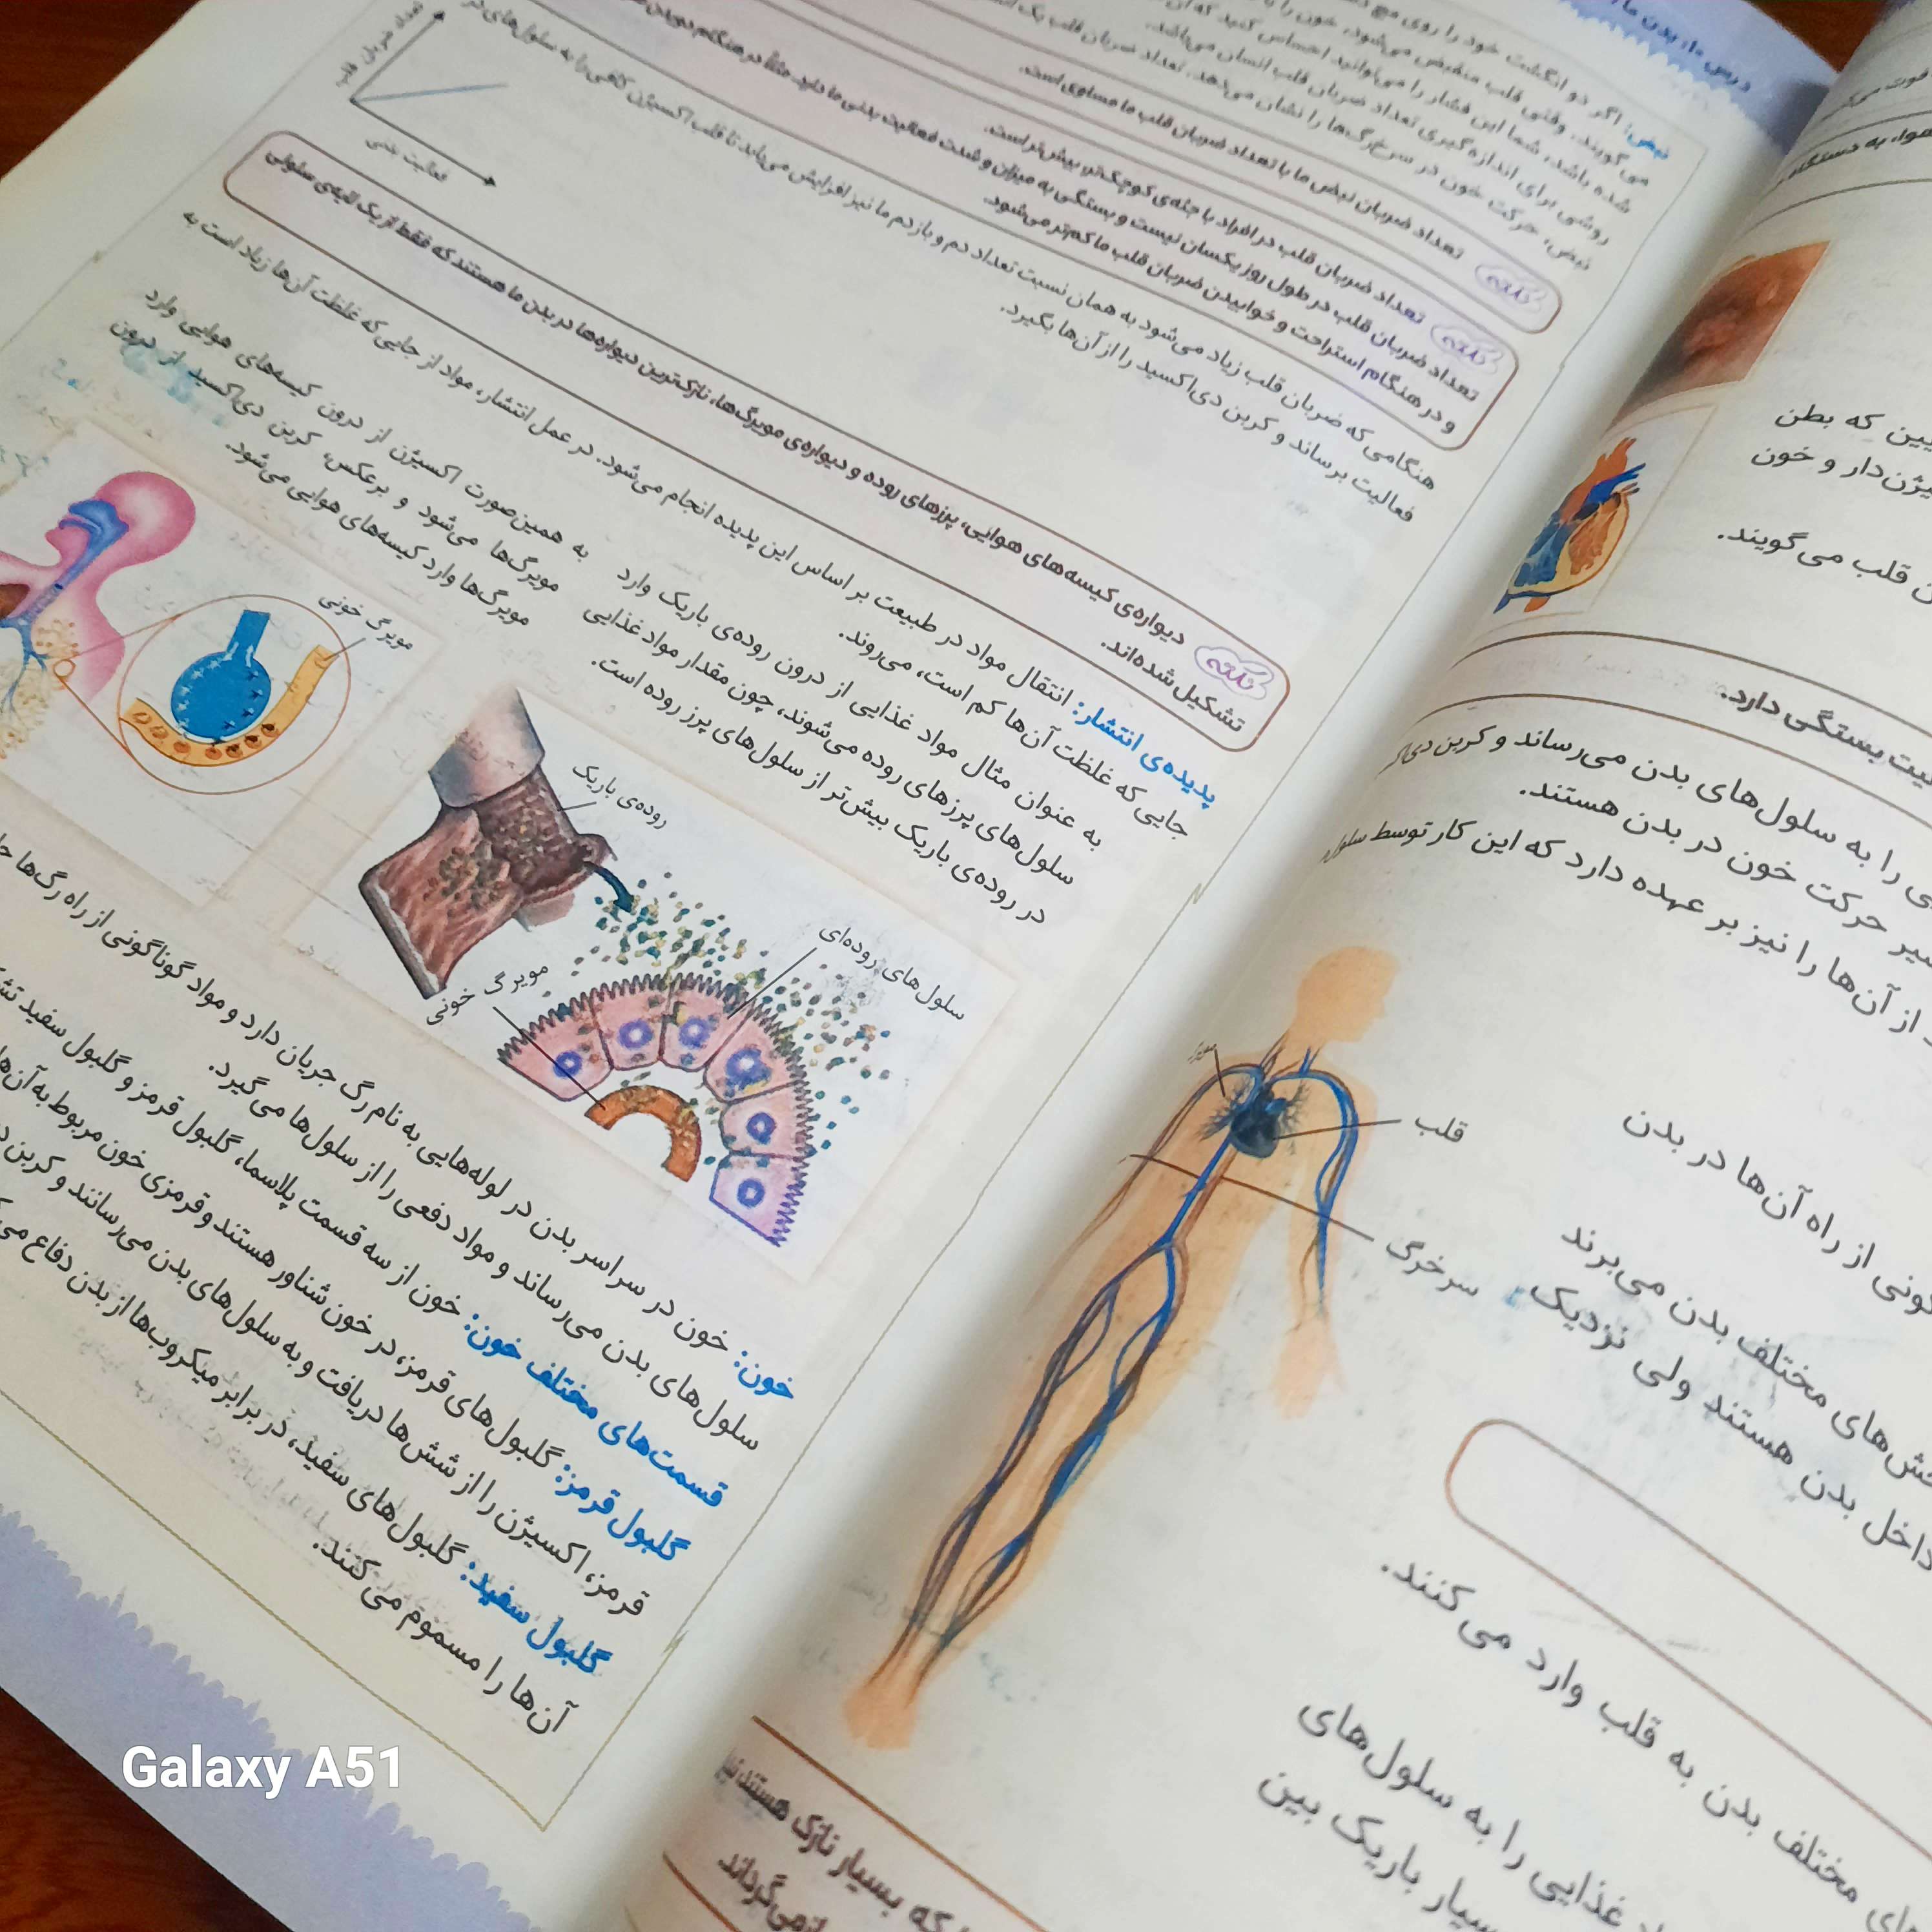 درس ۱۰: بدن ما
نبض: اگر دو انگشت خود را روی مچ
می‌گویند. وقتی قلب منقبض می‌شود، خون را با
شده باشد، شما این فشار را می‌توانید احساس کنید که
روشی برای اندازه‌گیری تعداد ضربان قلب انسان می‌باشد.
نبض، حرکت خون در سرخرگ‌ها را نشان می‌دهد. تعداد ضربان قلب یک
نکته تعداد ضربان نبض ما با تعداد ضربان قلب ما مساوی است.
نکته تعداد ضربان قلب در افراد با جثه‌ی کوچک‌تر، بیش‌تر است.
تعداد ضربان قلب در طول روز یکسان نیست و بستگی به میزان و شدت فعالیت بدنی ما دارد. مثلاً در هنگام
و در هنگام استراحت و خوابیدن ضربان قلب ما کم‌تر می‌شود.
هنگامی که ضربان قلب زیاد می‌شود به همان نسبت تعداد دم و بازدم ما نیز افزایش می‌یابد تا قلب اکسیژن کافی را به سلول‌های
فعالیت برساند و کربن دی‌اکسید را از آن‌ها بگیرد.
تعداد ضربان قلب
فعالیت بدنی
نکته دیواره‌ی کیسه‌های هوایی، پرزهای روده و دیواره‌ی مویرگ‌ها، نازک‌ترین دیواره‌ها در بدن ما هستند که فقط از یک لایه‌ی سلولی
تشکیل شده‌اند.
پدیده‌ی انتشار: انتقال مواد در طبیعت بر اساس این پدیده انجام می‌شود. در عمل انتشار، مواد از جایی که غلظت آن‌ها زیاد است به
جایی که غلظت آن‌ها کم است، می‌روند.
به عنوان مثال مواد غذایی از درون روده‌ی باریک وارد
سلول‌های پرزهای روده می‌شوند، چون مقدار مواد غذایی
در روده‌ی باریک بیش‌تر از سلول‌های پرز روده است.
به همین صورت اکسیژن از درون کیسه‌های هوایی وارد
مویرگ‌ها می‌شود و برعکس، کربن دی‌اکسید از درون
مویرگ‌ها وارد کیسه‌های هوایی می‌شود.
مویرگ خونی
روده‌ی باریک
سلول‌های روده‌ای
مویرگ خونی
خون: خون در سراسر بدن در لوله‌هایی به نام رگ جریان دارد و مواد گوناگونی از راه رگ‌ها
سلول‌های بدن می‌رساند و مواد دفعی را از سلول‌ها می‌گیرد.
قسمت‌های مختلف خون: خون از سه قسمت پلاسما، گلبول قرمز و گلبول سفید
گلبول قرمز: گلبول‌های قرمز، در خون شناور هستند و قرمزی خون مربوط به آن‌ها
قرمز، اکسیژن را از شش‌ها دریافت و به سلول‌های بدن می‌رسانند و کربن
گلبول سفید: گلبول‌های سفید، در برابر میکروب‌ها از بدن دفاع
آن‌ها را مسموم می‌کنند.
هوا، به دستگاه
که بطن
و خون
قلب می‌گویند.
بستگی دارد.
را به سلول‌های بدن می‌رساند و کربن
حرکت خون در بدن هستند.
از آن‌ها را نیز بر عهده دارد که این کار توسط
قلب
سرخرگ
از راه آن‌ها در بدن
مختلف بدن می‌برند
داخل بدن هستند ولی نزدیک
مختلف بدن به قلب وارد می‌کنند.
غذایی را به سلول‌های
بسیار باریک بین
که بسیار نازک هستند
Galaxy A51